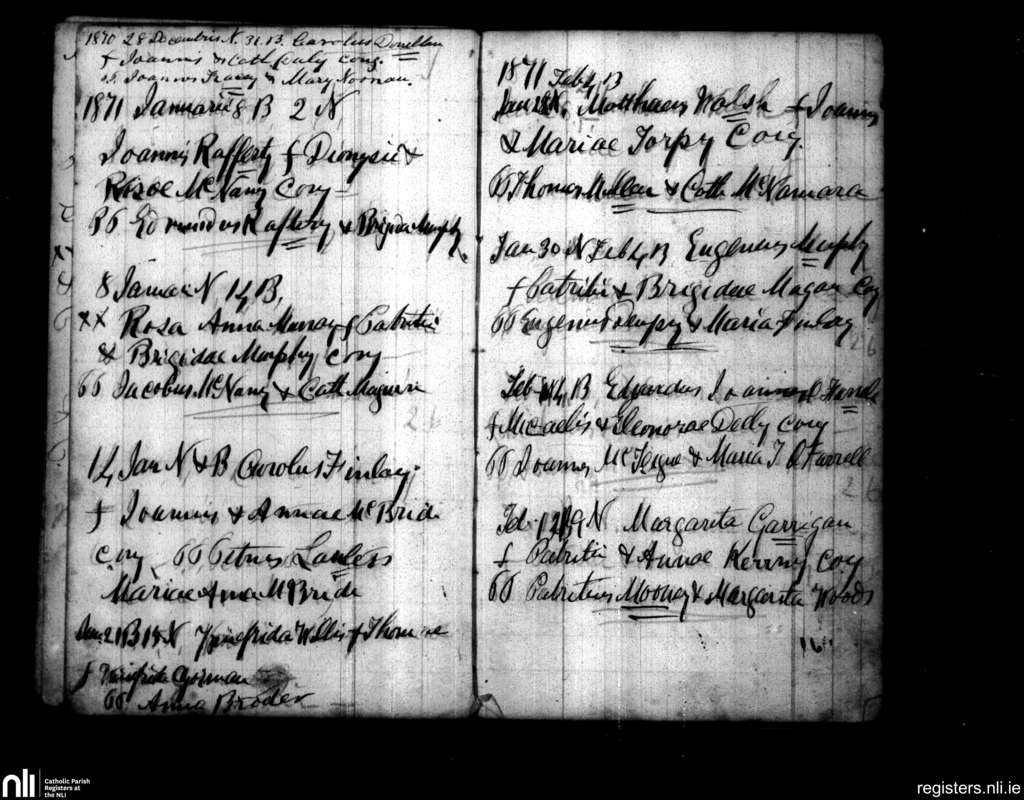 1870 28 Decembris N. 31. B. Carolus Donellan
f Joannis & Cath Daly Conj.
ss. Joannes Tracey & Mary Noonan.
1871 Januarii 8 B 2 N
Joannis Rafferty f Dionysii &
Rosae McNany Conj
SS Edmundus Raftery & Brigida Murphy
8 Januar N 14 B,
xx Rosa Anna Murray f Patritii
& Brigidae Murphy Conj
SS Jacobus McNany & Cath Maguire
2 6
14 Jan N & B Carolus Finlay
f Joannis & Annae McBride
Conj SS Petrus Lawless
Mariae Anna McBride
Jan. 21 B 15 N Winefrida Willis f Thomae
f Winifride Gorman
SS Anna Broder
1871 Feb 4 B
Jan 28 N. Matthaeus Walsh f Joannis
& Mariae Torpy Conj.
SS Thomas Mullen & Cath McNamara
Jan 30 N Feb 4 B Eugenius Murphy
f Patritii & Brigidae Magan Conj
SS Eugenius Dempsy & Maria Finlay
2 6
Feb 14 B Edwardus Joannes Farrell
f Micaelis & Eleonorae Dolly Conj
SS Joannes McTeigue & Maria T O Farrell
2 6
Feb 12 B 9 N Margarita Garrigan
f Patritii & Annae Conj
SS Patritius Mooney & Margarita Woods
16
nli
Catholic Parish
Registers at
the NLI
registers.nli.ie